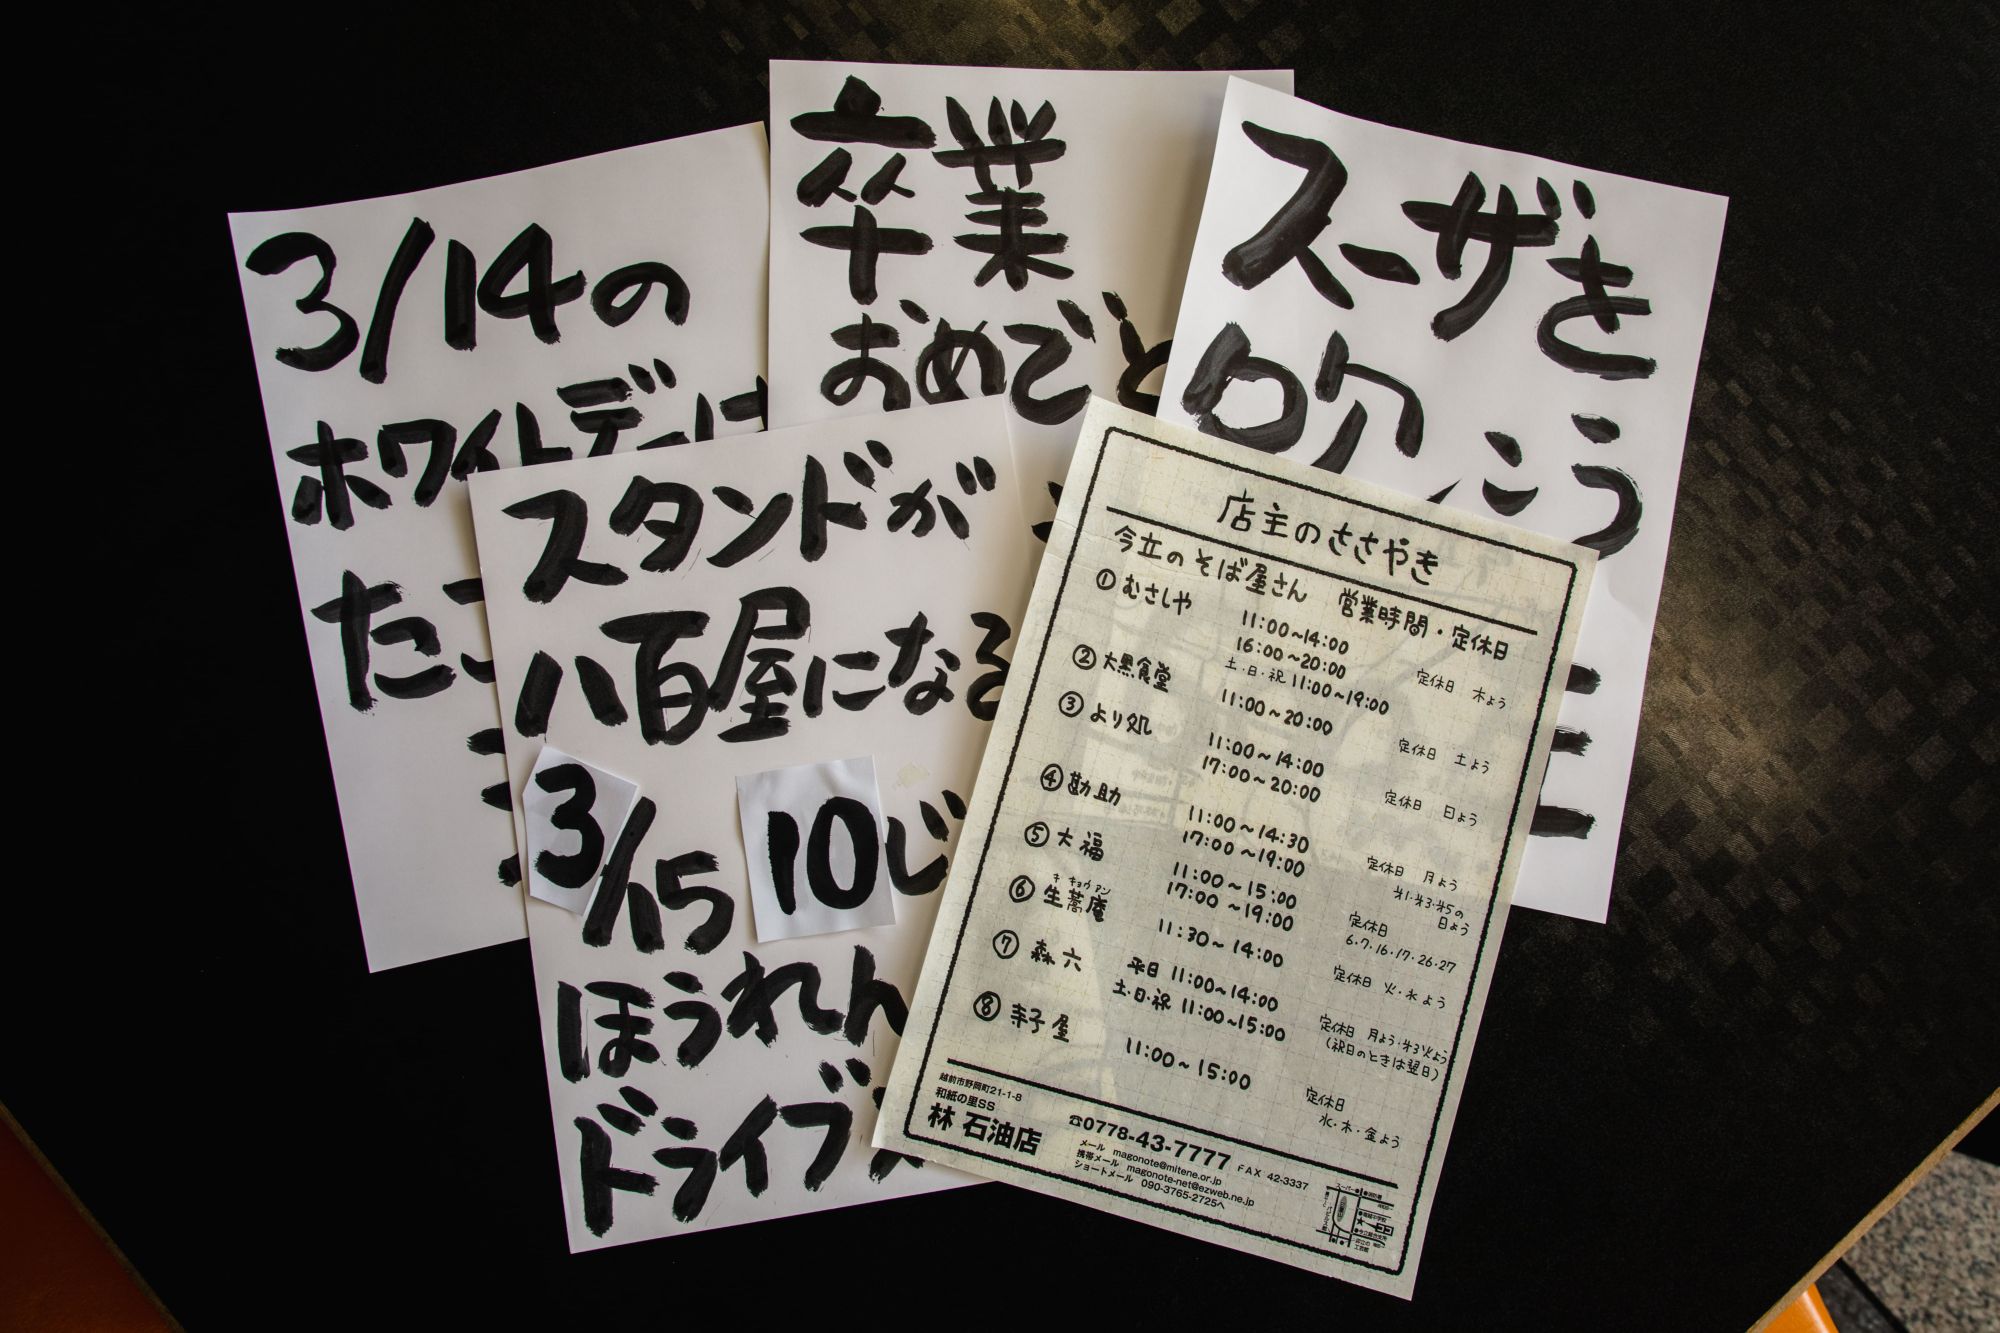 3/14の
ホワイトデーは
たこ
卒業
おめでと
スーザき
吹こう
スタンドが
八百屋になる
3/15 10じ
ほうれん
ドライブ
店主のささやき
今立のそば屋さん 営業時間・定休日
① むさしや 11:00~14:00
16:00~20:00
土・日・祝 11:00~19:00 定休日 木よう
② 大黒食堂 11:00~20:00 定休日 土よう
③ より処 11:00~14:00
17:00~20:00 定休日 日よう
④ 勘助 11:00~14:30
17:00~19:00 定休日 月よう
オ1・オ3・オ5の
日よう
⑤ 大福 11:00~15:00
17:00~19:00 定休日
6.7.16.17.26.27
⑥ 生蕎庵 キキョウアン 11:30~14:00 定休日 火・水よう
⑦ 森六 平日 11:00~14:00
土・日・祝 11:00~15:00 定休日 月よう・オ3火よう
(祝日のときは翌日)
⑧ 寺子屋 11:00~15:00 定休日
水・木・金よう
越前市野岡町21-1-8
和紙の里SS
林 石油店
☎0778-43-7777 FAX 42-3337
メール magonote@mitene.or.jp
携帯メール magonote-net@ezweb.ne.jp
ショートメール 090-3765-2725へ